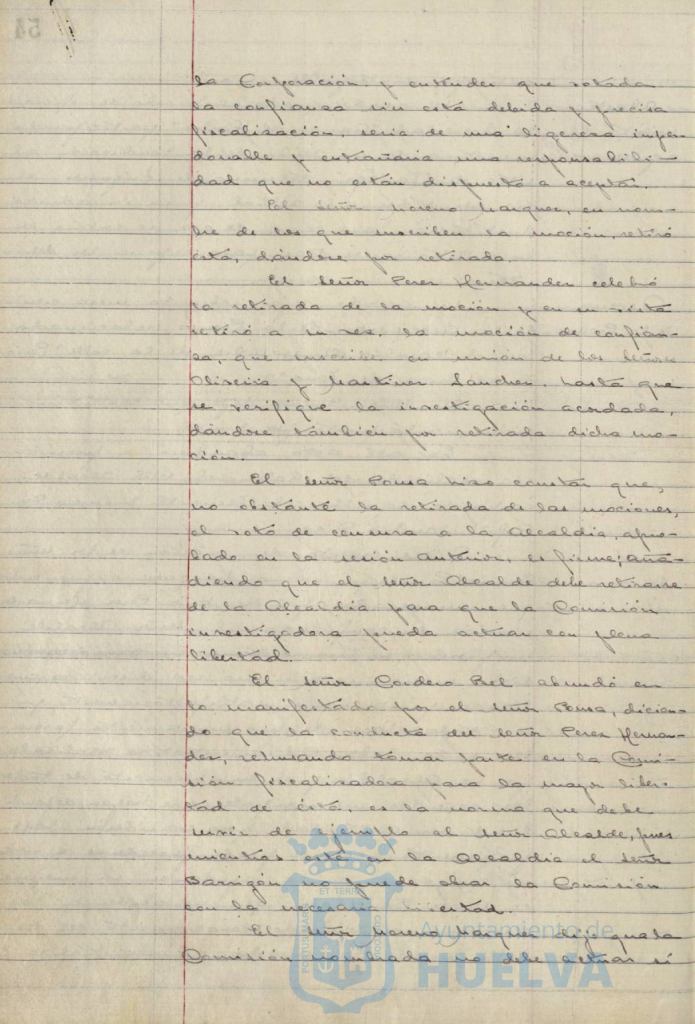 la Corporación y entender que votada
la confianza sin está debida y precisa
fiscalización, seria de una ligereza imper-
donable y entrañaria una responsabili-
dad que no están dispuesto a aceptar.
El señor Moreno Marquez, en nom-
bre de los que suscriben la moción, retiró
ésta, dándose por retirada.
El señor Perez Hernandez celebró
la retirada de la moción y en su vista
retiró a su vez, la moción de confian-
za, que suscribe en unión de los señores
Oliveira y Martinez Sanchez, hasta que
se verifique la investigación acordada,
dándose también por retirada dicha mo-
ción.
El señor Ponsa hizo constar que,
no obstante la retirada de las mociones,
el voto de censura a la Alcaldia, apro-
bado en la sesión anterior, es firme; aña-
diendo que el señor Alcalde debe retirarse
de la Alcaldia para que la Comisión
investigadora pueda actuar con plena
libertad.
El señor Cordero Bel abundó en
lo manifestado por el señor Ponsa, dicien-
do que la conducta del señor Perez Hernan-
dez, rehusando tomar parte en la Comi-
sión fiscalizadora para la mayor liber-
tad de ésta, es la norma que debe
servir de ejemplo al señor Alcalde, pues
mientras esté en la Alcaldia el señor
Barrigón no puede obrar la Comisión
con la necesaria libertad.
El señor Moreno Marquez dijo que la
Comisión nombrada no debe actuar si
54
Ayuntamiento de
HUELVA